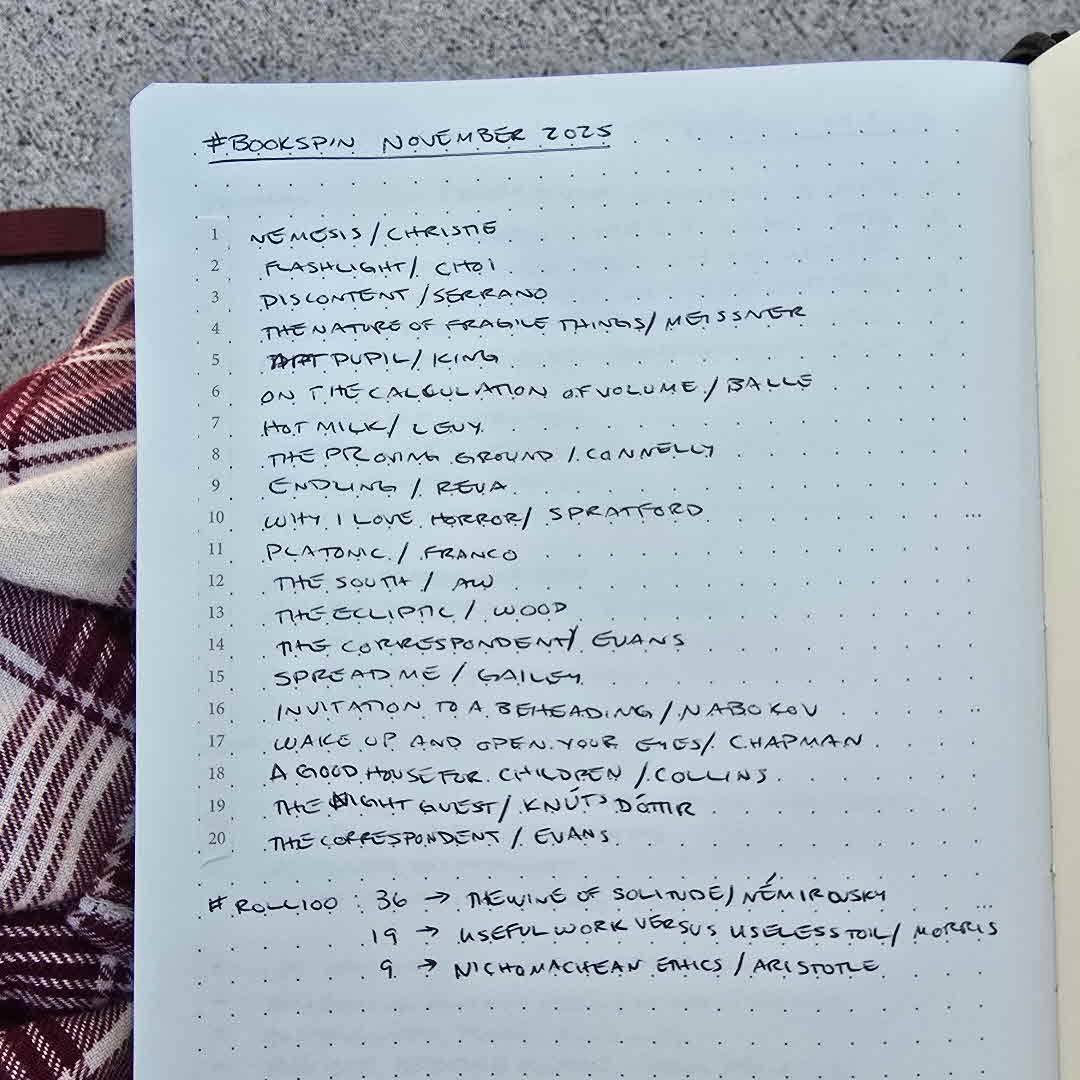 #BOOKSPIN NOVEMBER 2025
1 NEMESIS / CHRISTIE
2 FLASHLIGHT / CHOI
3 DISCONTENT / SERRANO
4 THE NATURE OF FRAGILE THINGS / MEISSNER
5 APT PUPIL / KING
6 ON THE CALCULATION OF VOLUME / BALLE
7 HOT MILK / LEVY
8 THE PROVING GROUND / CONNELLY
9 ENDLING / REVA
10 WHY I LOVE HORROR / SPRATFORD
11 PLATONIC / FRANCO
12 THE SOUTH / AW
13 THE ECLIPTIC / WOOD
14 THE CORRESPONDENT / EVANS
15 SPREAD ME / GAILEY
16 INVITATION TO A BEHEADING / NABOKOV
17 WAKE UP AND OPEN YOUR EYES / CHAPMAN
18 A GOOD HOUSE FOR CHILDREN / COLLINS
19 THE NIGHT GUEST / KNÚTSDÓTTIR
20 THE CORRESPONDENT / EVANS
#ROLL100 : 36 → THE WINE OF SOLITUDE / NÉMIROVSKY
19 → USEFUL WORK VERSUS USELESS TOIL / MORRIS
9 → NICHOMACHEAN ETHICS / ARISTOTLE